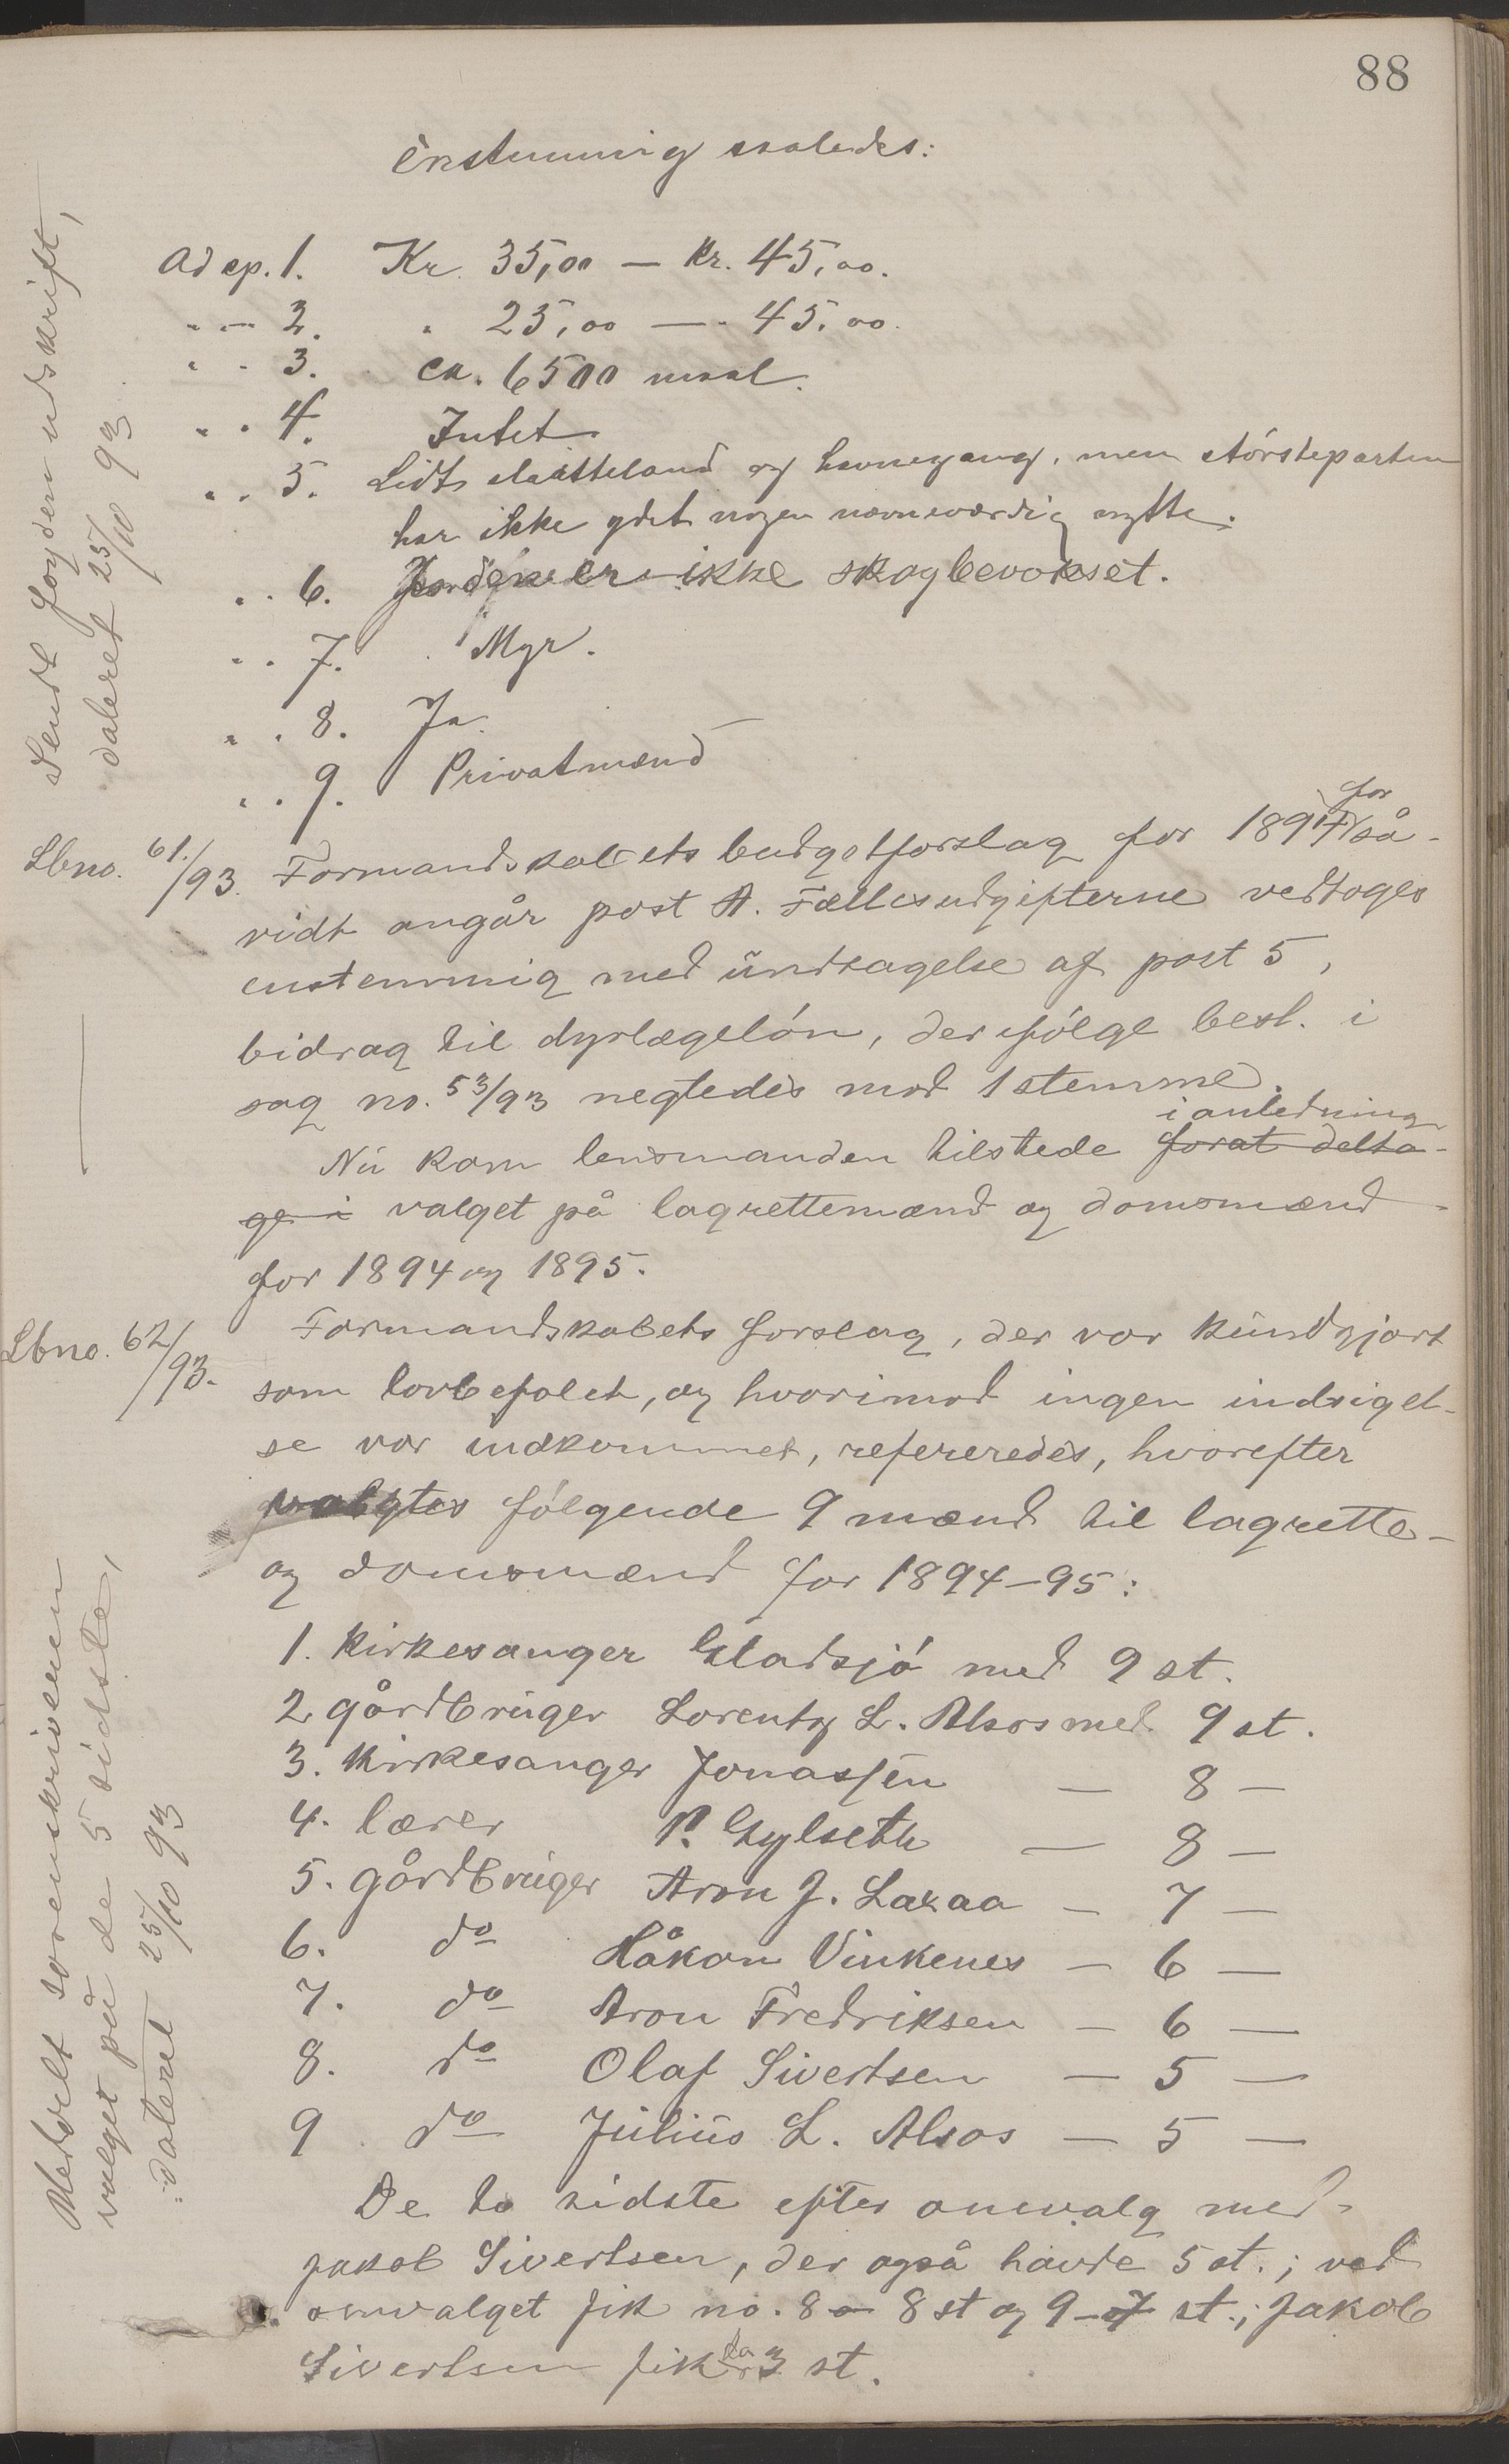 88
Enstemmig saaledes:
Ad sp. 1. Kr. 35,00 — Kr. 45,00.
" — 2. " 25,00 — " 45,00.
" " 3. ca. 6500 maal.
" " 4. Intet
" " 5. Lidt slaatteland og havnegang, men störsteparten
har ikke ydet nogen nævneværdig nytte.
" " 6. Jorden er ikke skogbevokset.
" " 7. Myr.
" " 8. Ja.
" " 9. Privatmænd
Sendt fogden udskrift,
dateret 25/10 93
Lbno. 61./93. Formandskabets budgetforslag for 1894 for så-
vidt angår post A. Fællesudgifterne vedtoges
enstemmig med undtagelse af post 5,
bidrag til dyrlægelön, der ifölge besl. i
sag no. 53/93 negtedes mod 1 stemme.
Nu kom lensmanden tilstede i anledning forat delta-
ge i valget på lagrettemænd og domsmænd
for 1894 og 1895.
Lbno. 62/93. Formandskabets forslag, der var kundgjort
som lovbefalet, og hvorimod ingen indsigel-
se var indkommet, refereredes, hvorefter
valgtes fölgende 9 mænd til lagrette-
og domsmænd for 1894–95:
1. Kirkesanger Gladsjö med 9 st.
2 gårdbruger Lorentz L. Alsos med 9 st.
3. Kirkesanger Jonassen — 8 —
4. lærer P. Gylseth — 8 —
5. gårdbruger Aron J. Laxaa — 7 —
6. do Håkon Vinkenes — 6 —
7. do Aron Fredriksen — 6 —
8. do Olaf Sivertsen — 5 —
9 do Julius L. Alsos — 5 —
De to sidste efter omvalg med
Jakob Sivertsen, der også havde 5 st.; ved
omvalget fik no. 8 – 8 st og 9 – 7 st.; Jakob
Sivertsen fik da 3 st.
Meddelt sorenskriveren
valget på de 5 sidste,
dateret 25/10 93